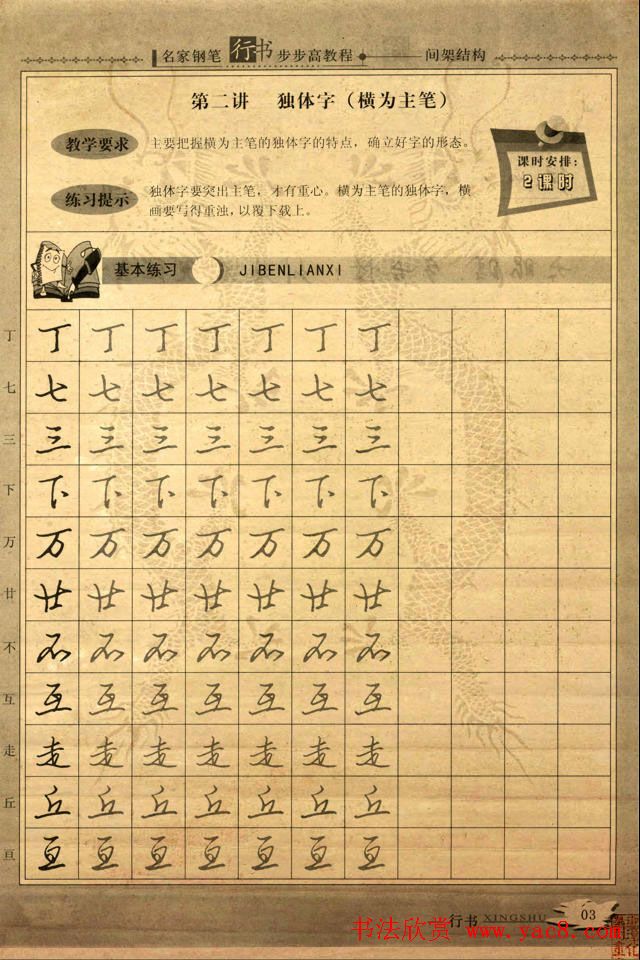 名家钢笔行书步步高教程 间架结构
第二讲 独体字（横为主笔）
教学要求 主要把握横为主笔的独体字的特点，确立好字的形态。
课时安排：
2课时
练习提示 独体字要突出主笔，才有重心。横为主笔的独体字，横
画要写得重浊，以覆下载上。
基本练习 JIBENLIANXI
丁 丁 丁 丁 丁 丁 丁 丁
七 七 七 七 七 七 七 七
三 三 三 三 三 三 三 三
下 下 下 下 下 下 下 下
万 万 万 万 万 万 万 万
廿 廿 廿 廿 廿 廿 廿 廿
不 不 不 不 不 不 不 不
互 互 互 互 互 互 互 互
走 走 走 走 走 走 走 走
丘 丘 丘 丘 丘 丘 丘 丘
亘 亘 亘 亘 亘 亘 亘 亘
行书 XINGSHU 03
书法欣赏 www.yac8.com